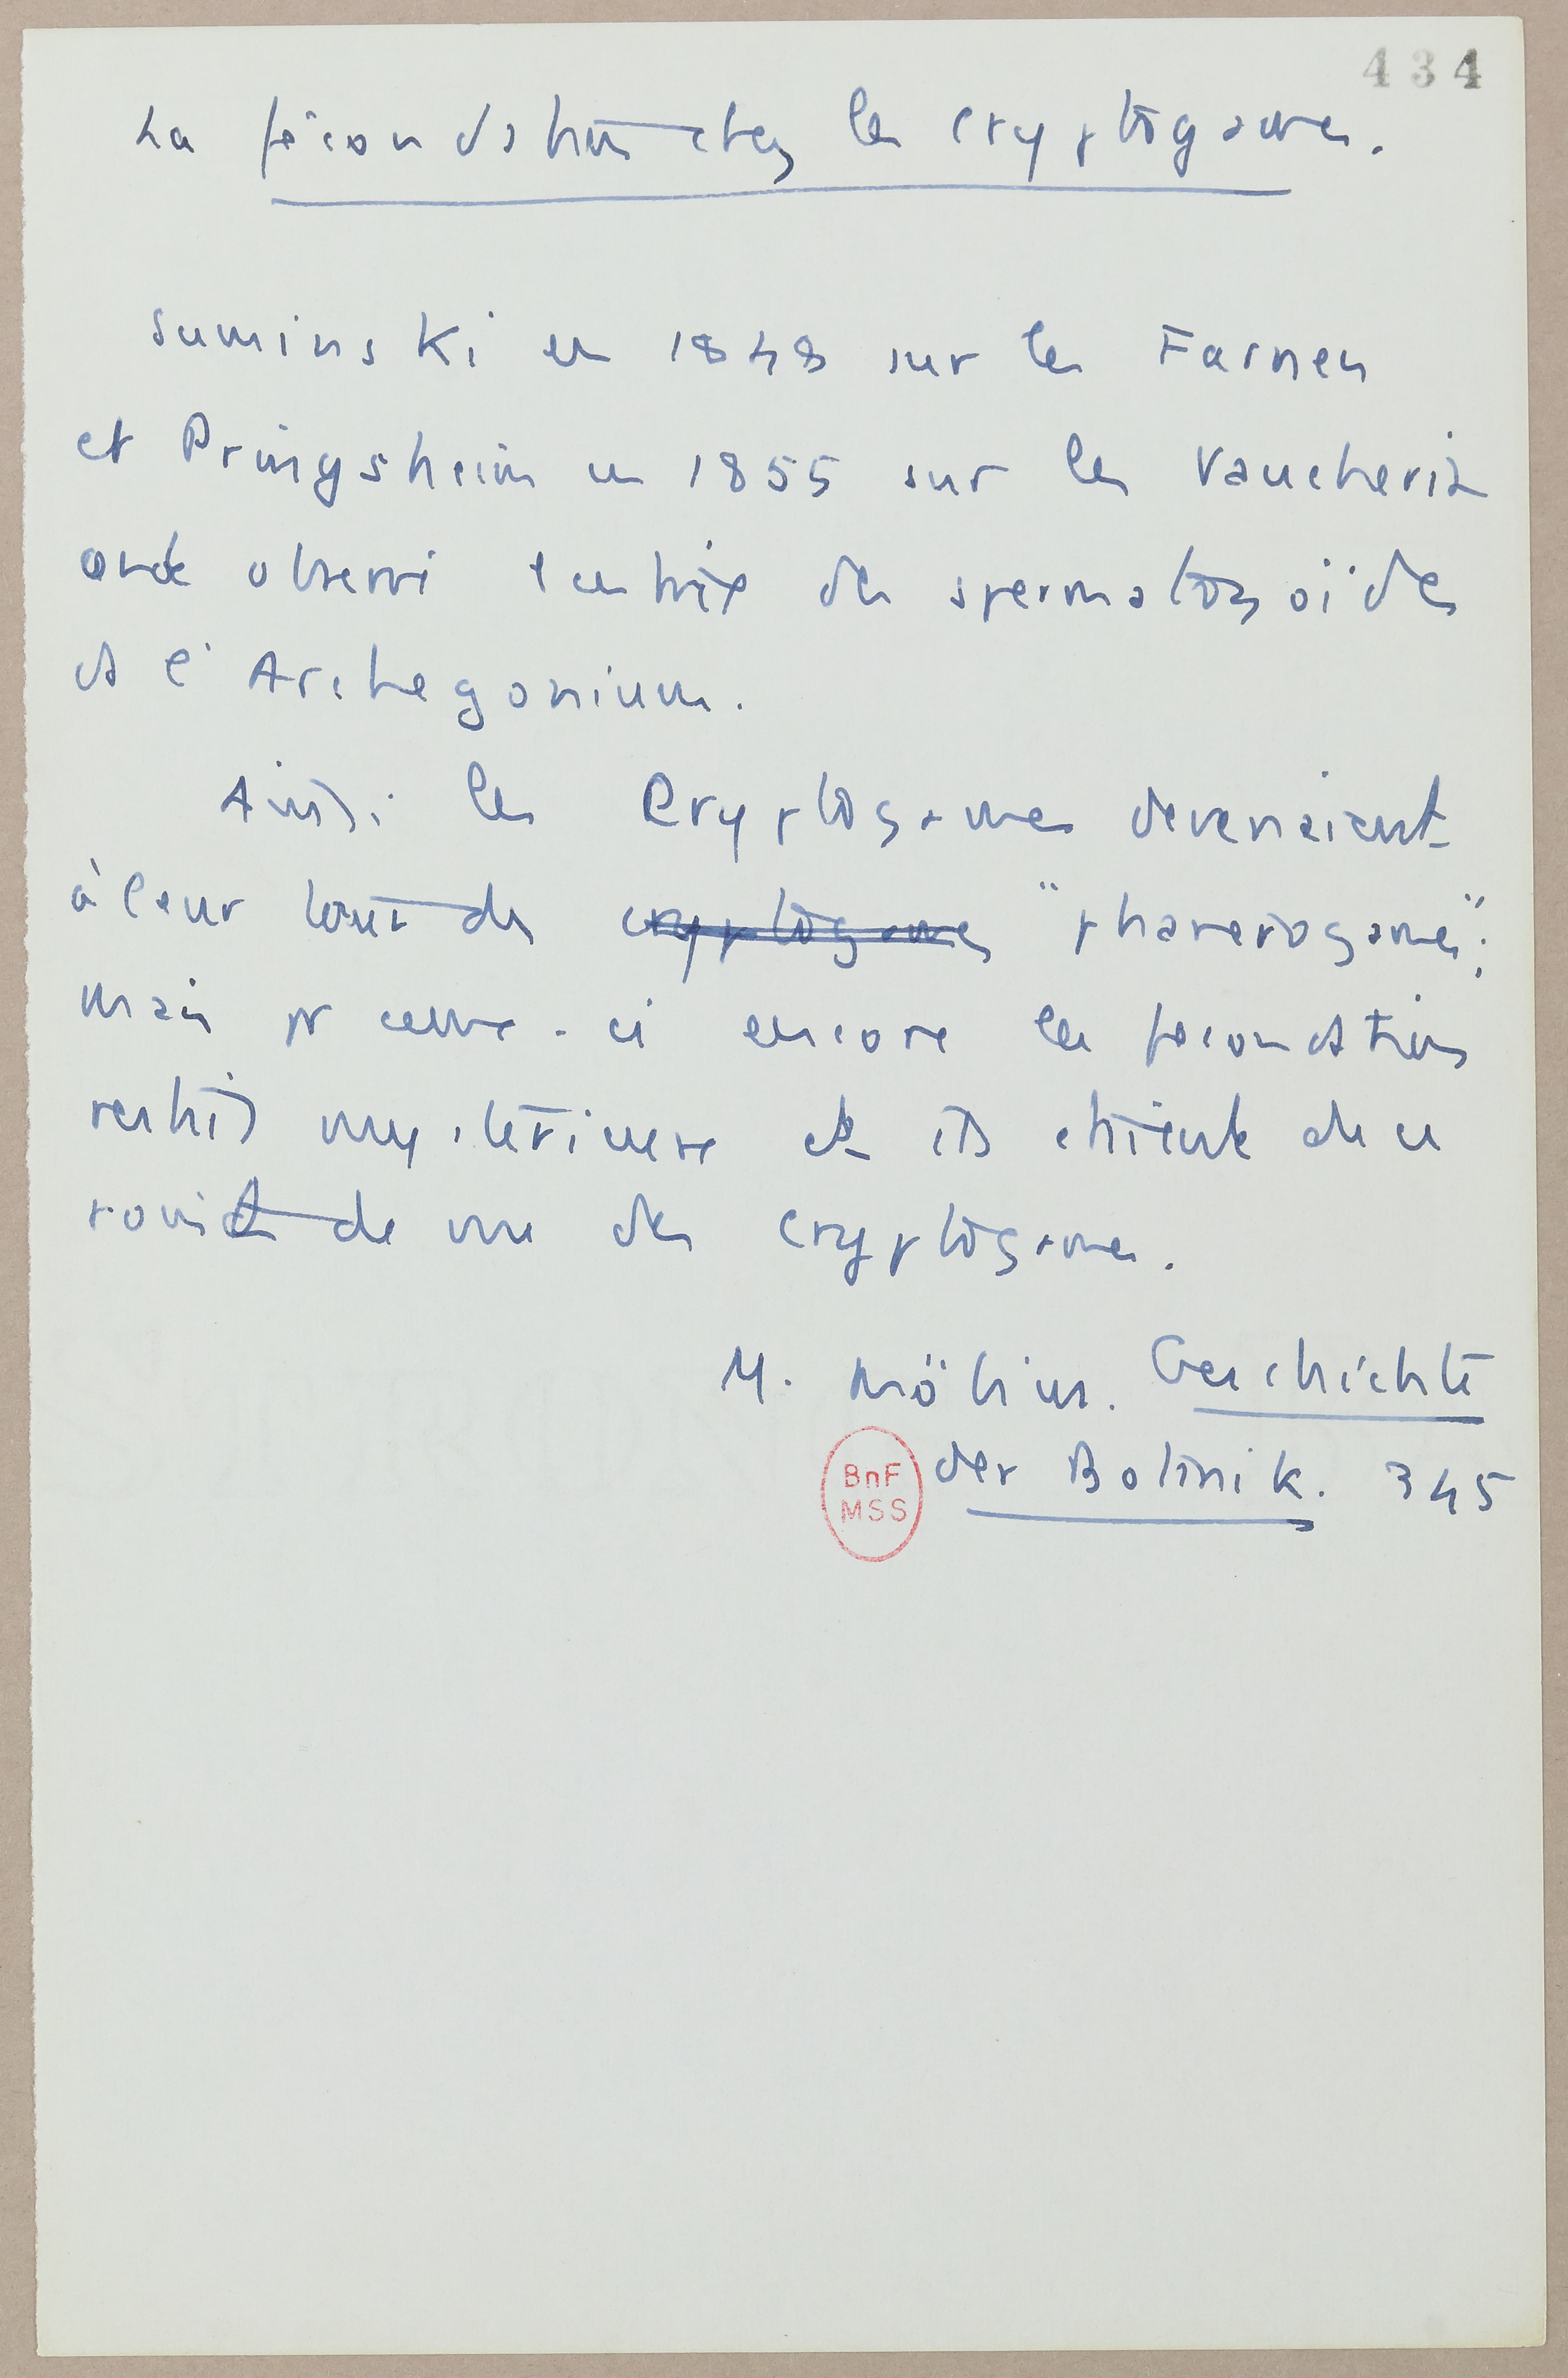 434
La fécondation chez les cryptogames.
Suminski en 1848 sur les Farnen
et Pringsheim en 1855 sur les Vaucheria
ont observé l'entrée des spermatozoïdes
ds l'Archegonium.
Ainsi les Cryptogames devenaient
à leur tour des cryptogames "phanerogames";
mais pr ceux-ci encore la fécondation
restait mystérieuse et ils étaient de ce
point de vue des cryptogames.
M. Möbius. Geschichte
der Botanik. 345
BnF
MSS